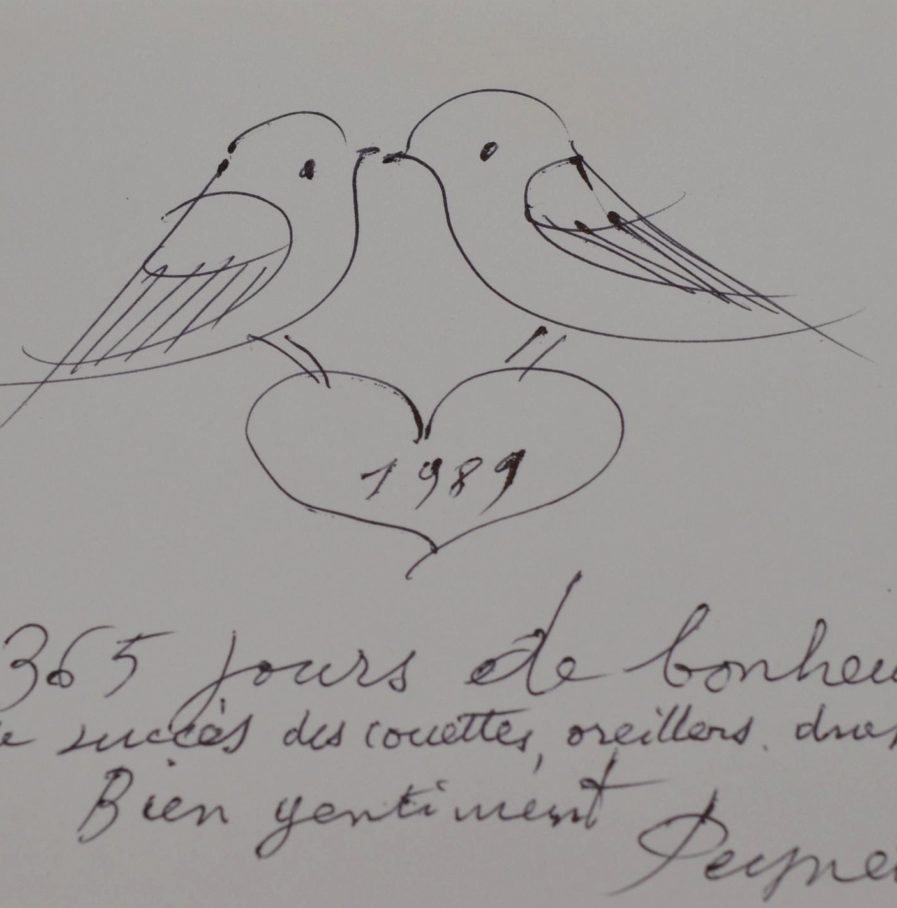 1989
365 jours de bonheu
e succès des couettes, oreillers. dra
Bien gentiment
Peyne